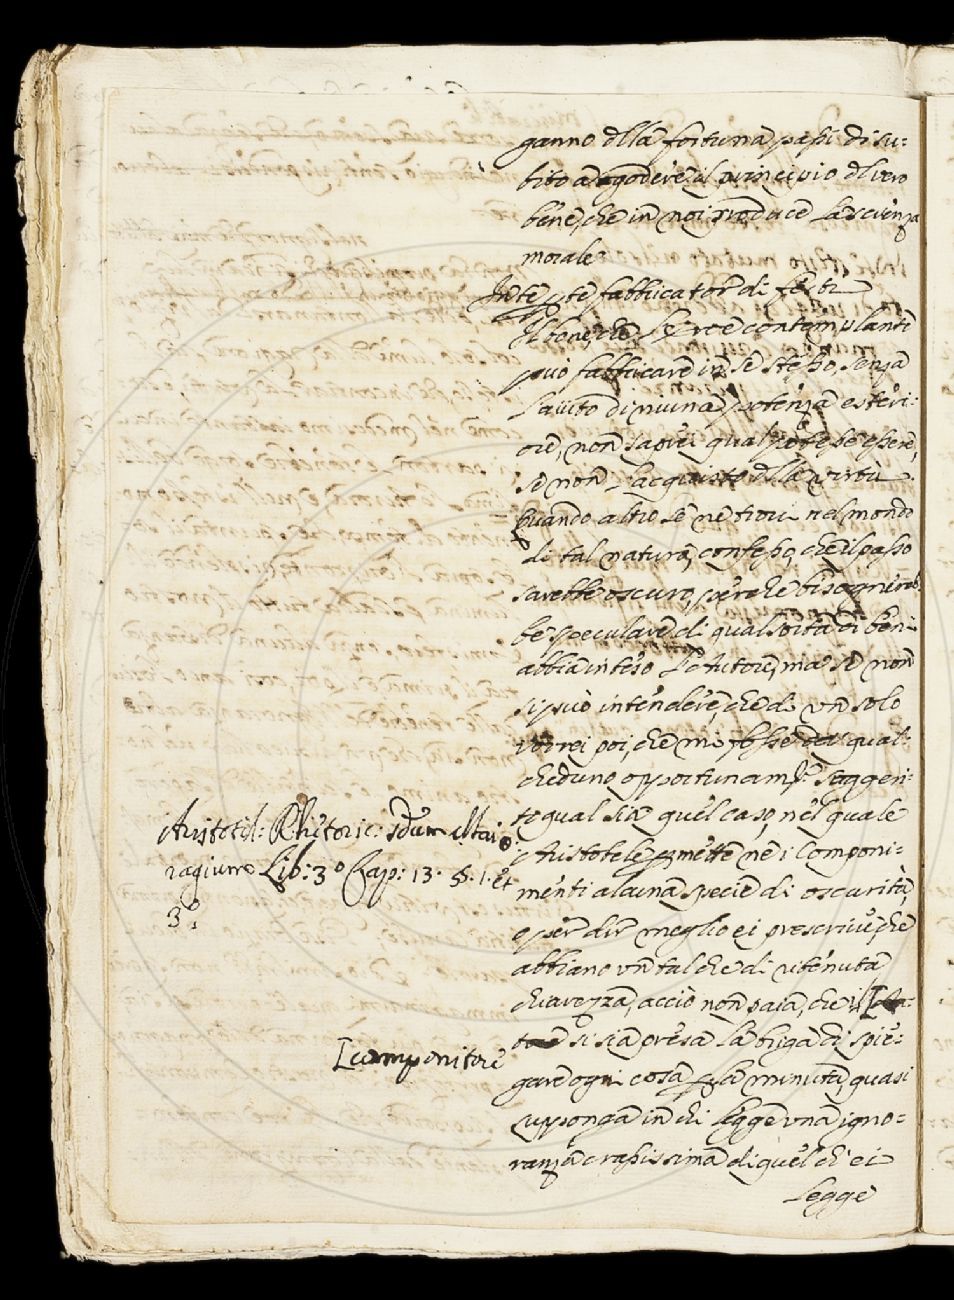 ganno dlla fortuna passi di su-
bito a godere il principio dl vero
bene, che in noi produce la scienza
morale.
In te, p te fabbricator di festi
Il bene, che se pre e contemplante
può fabbricare in se stesso, senza
l'aiuto di niuna potenza esteri-
ore, non saprei qual potesse essere,
se non l'acquisto dlla virtù.
Quando altro se ne trovi nel mondo
di tal natura, confesso, che il passo
sarebbe oscuro, perche bisognireb
be speculare di qual sorta di beni
abbia inteso l'Autore, ma se non
si può intendere, che di un solo
vorrei poi, che mi fosse da qual-
cheduno opportunamte suggeri-
to qual sia quel caso, nel quale
Aristotele pmette ne i Componi-
menti alcuna specie di oscurità,
o per dir meglio ei prescrive, che
abbiano un tal che di ritenuta
chiarezza, acciò non paia, che il
si sia presa la briga di spie-
gare ogni cosa p la minuta, quasi
supponga in chi legge una igno-
ranza crassissima di quel ch' ei
legge
Aristotil: Rhetoric: sdum Maio
ragium Lib: 3º Cap: 13. §. 1. et
3º.
[componitore